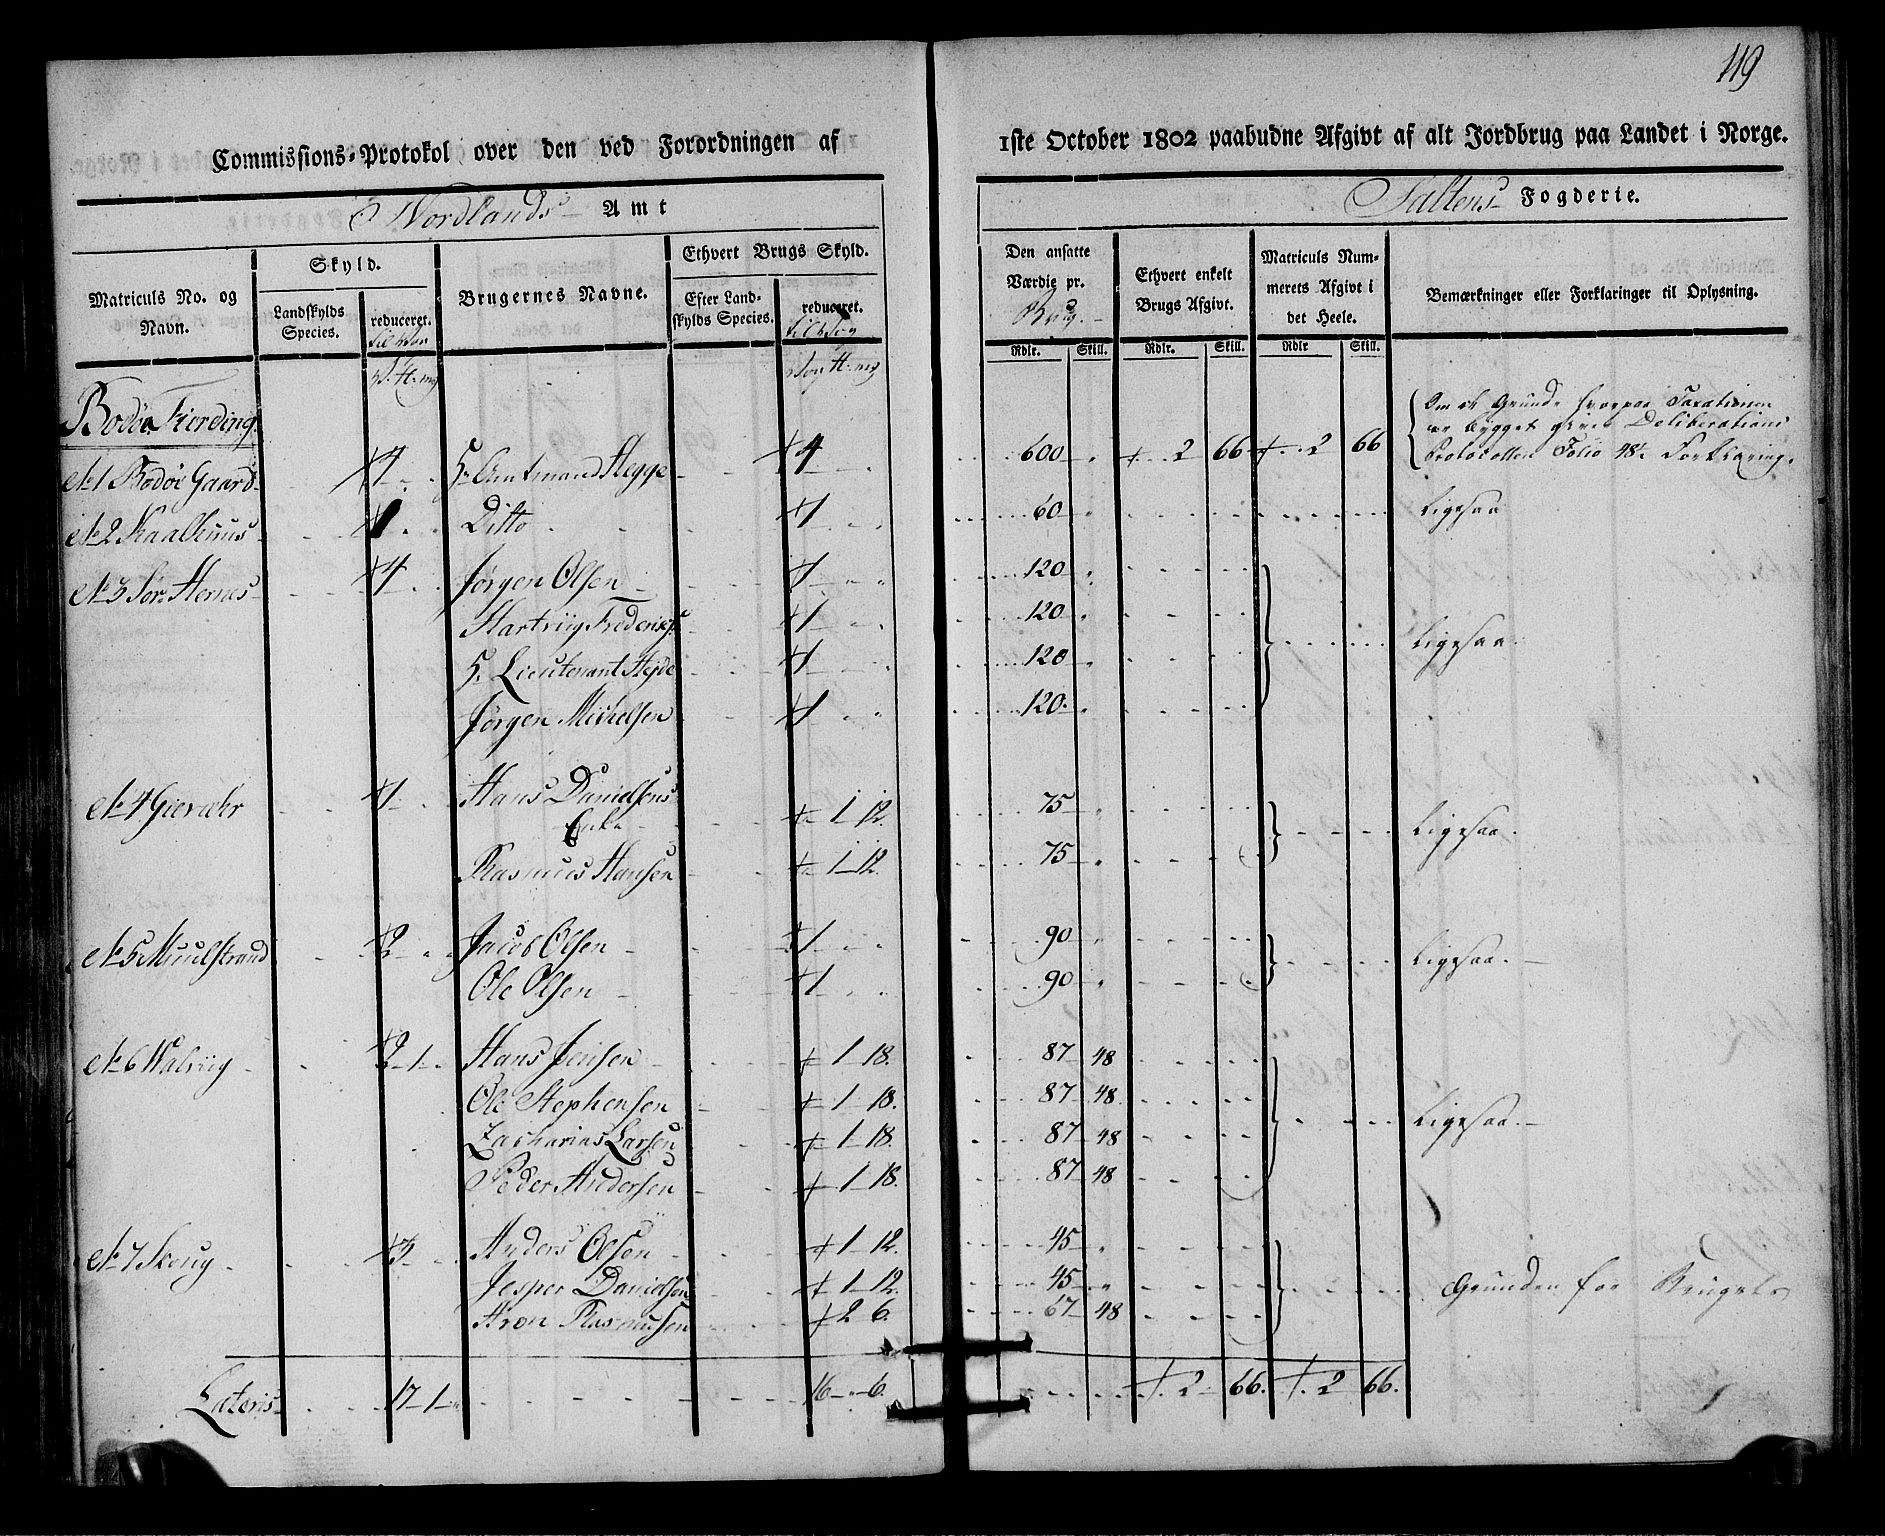 119
Commissions-Protokol over den ved Forordningen af 1ste October 1802 paabudne Afgivt af alt Jordbrug paa Landet i Norge.
Nordlands Amt
Saltens Fogderie.
Matriculs No. og Navn.
Skyld.
Landskylds Species.
reduceret.
Brugernes Navne.
Ethvert Brugs Skyld.
Efter Landskylds Species.
reduceret.
Den ansatte Værdie pr. Brug.
Ethvert enkelt Brugs Afgivt.
Matriculs Nummerets Afgivt i det Heele.
Bemærkninger eller Forklaringer til Oplysning.
Rdlr. Skill. Rdlr. Skill. Rdlr Skill.
Bodøe Fierding
No 1 Bodøe Gaard 4 Sr Amtmand Hegge 4 600 2 66 2 66
Om de Grunde hvorpaa Taxationen
er bygget giver Deliberations
Protocollen Folio 48 Forklaring.
No 2 Kaalhuus 1 Ditto 1 60 Ligesaa
No 3 Sør Hernes 4 Jørgen Olsen 1 120
Hartviig Frederiks. 1 120 Ligesaa
Sr Lieutenant Heyde 1 120
Jørgen Michelsen 1 120
No 4 Gieræhr 1 Hans Danielsens
Enke 1 12 75 Ligesaa.
Rasmus Hansen 1 12 75
No 5 Muulstrand 2 Jacob Olsen 1 90 Ligesaa.
Ole Olsen 1 90
No 6 Walviig 2 1 Hans Jensen 1 18 87 48
Ole Stephensen 1 18 87 48 Ligesaa.
Zacharias Larsen 1 18 87 48
Peder Andersen 1 18 87 48
No 7 Skoug 3 Anders Olsen 1 12 45
Jesper Danielsen 1 12 45 Grunden for Brugets
Aron Rasmusen 2 6 67 48
Lateris 17 1 16 6 2 66 2 66